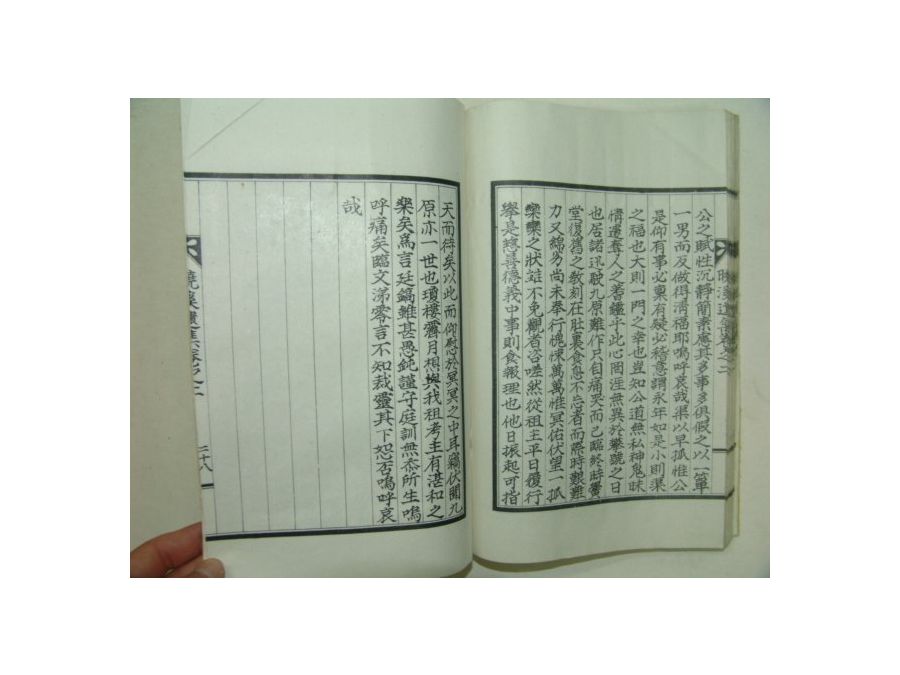 公之賦性沉靜簡素應其多事多俱假之以一簞
一男而反做得淸福耶嗚呼哀哉渠以早孤惟公
是仰有事必稟有疑必稽意謂永年如是小則渠
之福也大則一門之幸也豈知公道無私神鬼昧
情遽奪人之蓍鑑乎此心罔涯無異於攀號之日
也居諸迅駛九原難作只自痛哭而已臨終
堂復舊之敎刻在肚裏食息不忘者而際時艱難
力又綿劣尙未奉行愧悚萬萬惟冥佑伏望一孤
欒欒之狀誰不免觀者咨嗟然從祖主平日履行
擧是慈善德義中事則食報理也他日振起可指
天而待矣以此而仰慰於冥冥之中耳竊伏聞九
原亦一世也瓊樓霽月想與我祖考主有湛和之
樂矣爲言廷鎬雖甚愚鈍謹守庭訓無忝所生嗚
呼痛矣臨文涕零言不知裁靈其下恕否嗚呼哀
哉
遺集卷之二
二十八